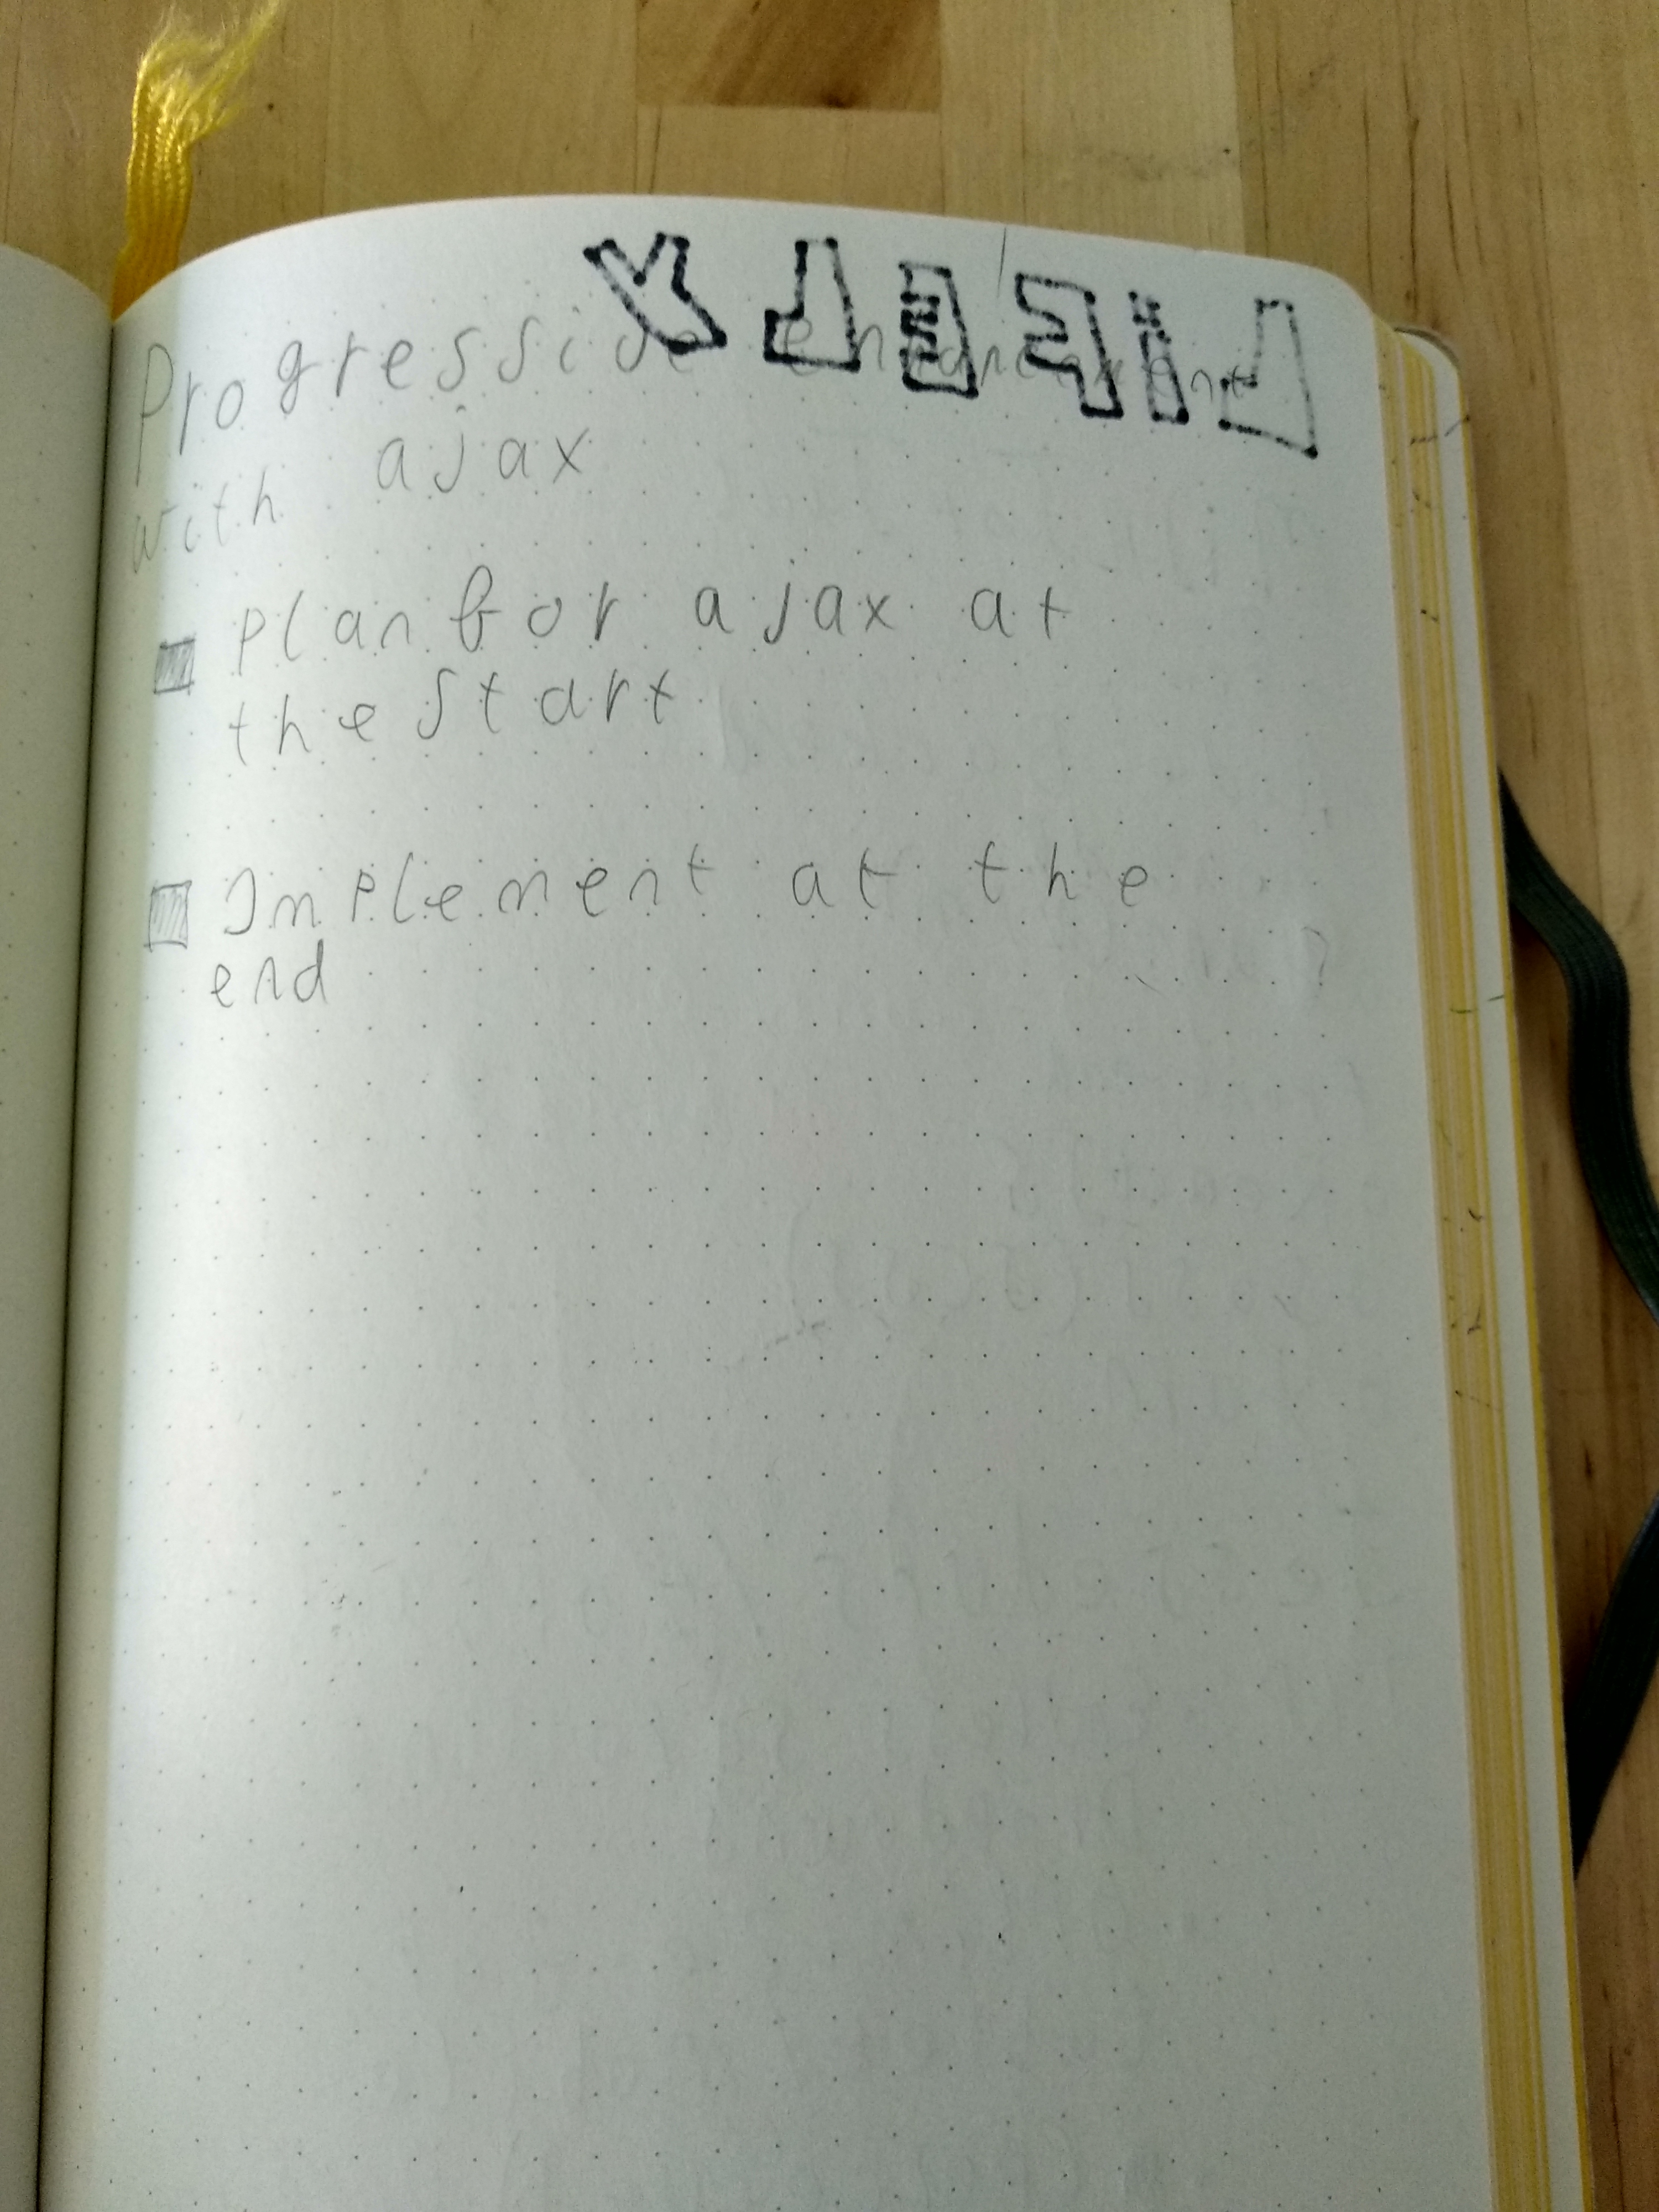 Progressive enhancement
with ajax
Plan for ajax at
the start
Implement at the
end